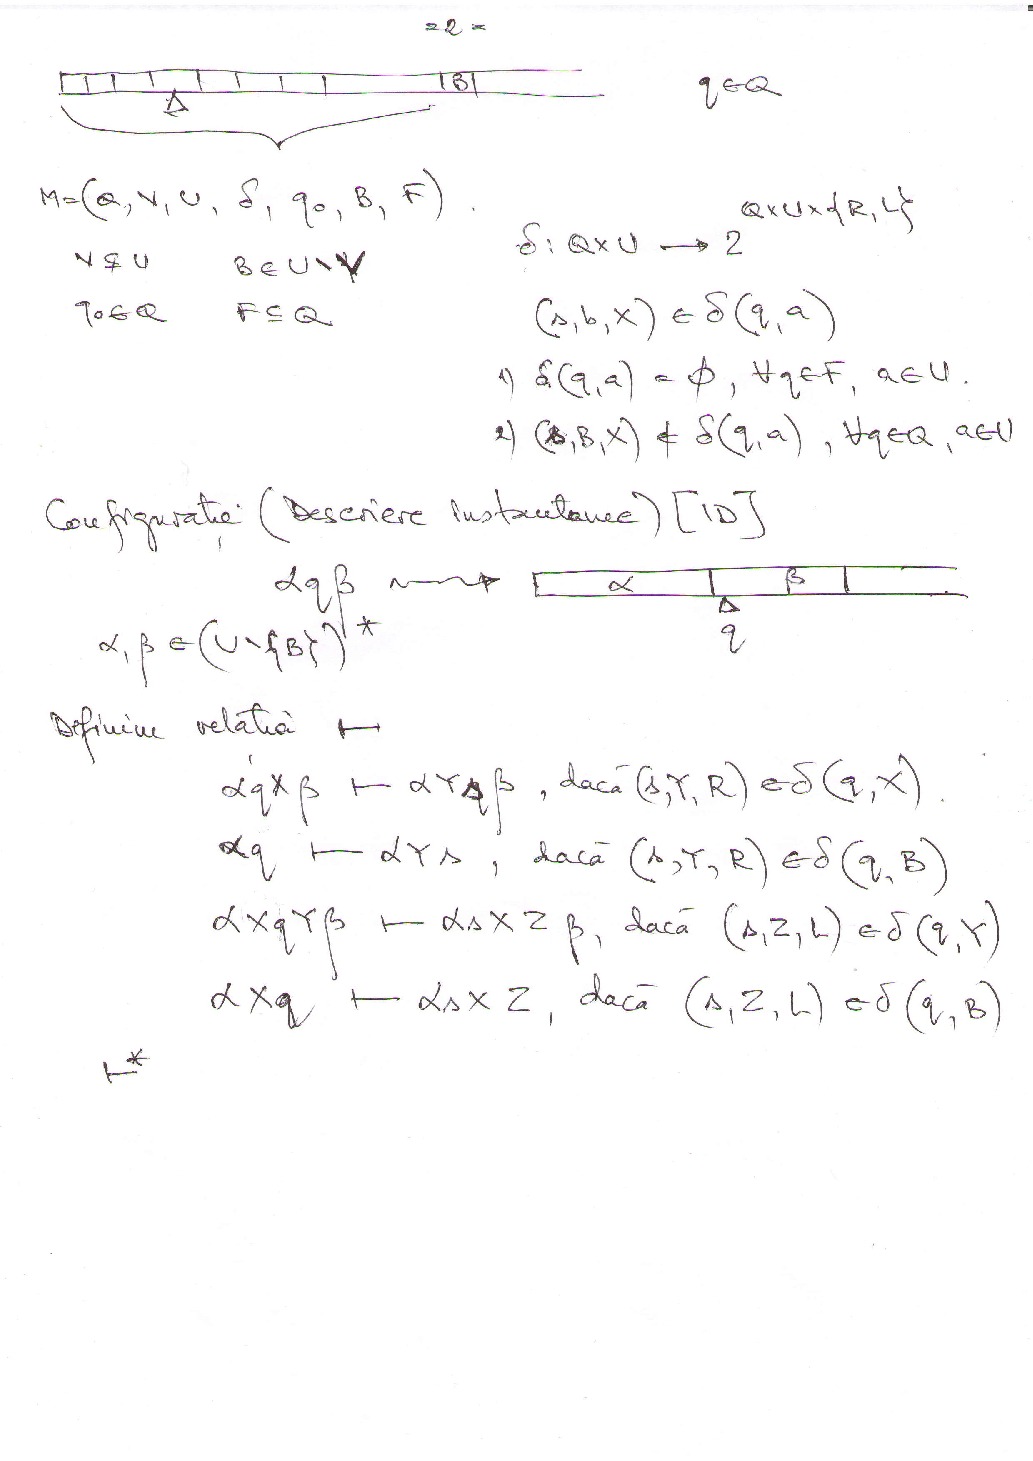 = 2 =
B
q ∈ Q
M=(Q, V, U, δ, q₀, B, F).
V ⊊ U B ∈ U \ V
q₀ ∈ Q F ⊆ Q
δ: Q×U → 2^{Q×U×{R,L}}
(s,b,X) ∈ δ(q,a)
1) δ(q,a) = ∅, ∀q∈F, a∈U.
2) (s,B,X) ∉ δ(q,a), ∀q∈Q, a∈U
Configurație (Descriere instantanee) [ID]
αqβ ⟿ α β
q
α, β ∈ (U \ {B})*
Definim relația ⊢
αqXβ ⊢ αYsβ, dacă (s,Y,R) ∈ δ(q,X).
αq ⊢ αYs, dacă (s,Y,R) ∈ δ(q,B)
αXqYβ ⊢ αsXZβ, dacă (s,Z,L) ∈ δ(q,Y)
αXq ⊢ αsXZ, dacă (s,Z,L) ∈ δ(q,B)
⊢*